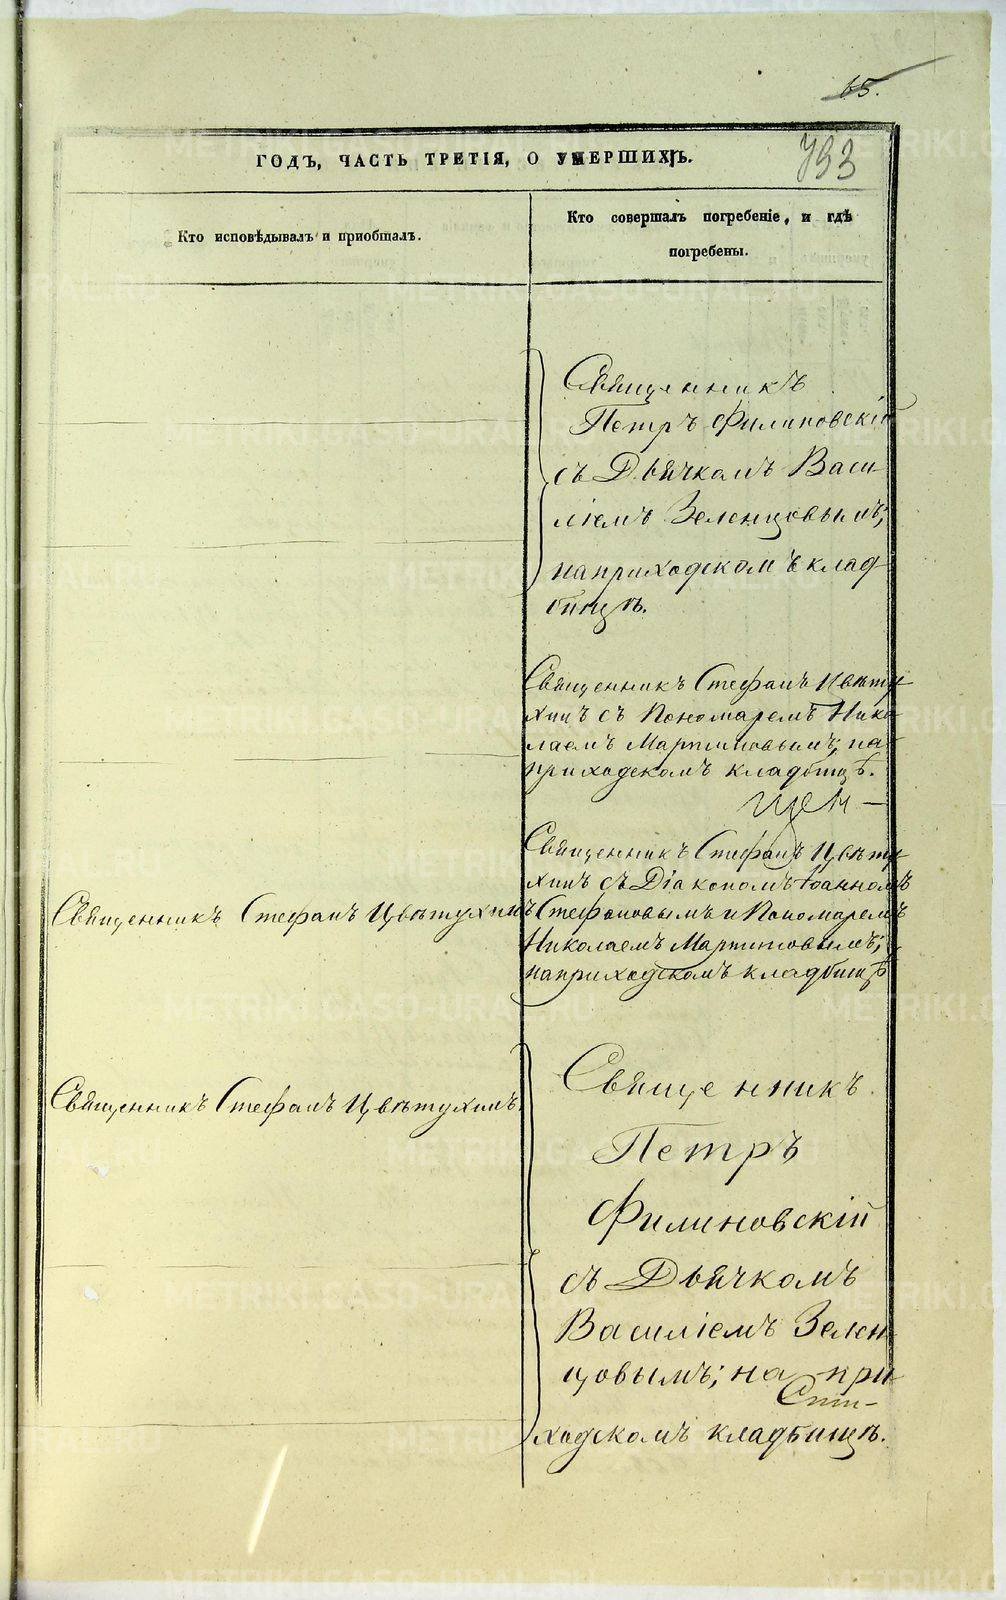 65.
793
ГОДЪ, ЧАСТЬ ТРЕТІЯ, О УМЕРШИХЪ.
Кто исповѣдывалъ и пріобщалъ.
Кто совершалъ погребеніе, и гдѣ
погребены.
Священникъ
Петръ Филиновскій
съ Дьячкомъ Васи
ліемъ Зеленцовымъ;
на приходскомъ клад
бищѣ.
Священникъ Стефанъ Цвѣту
хинъ съ Пономаремъ Нико
лаемъ Мартиновымъ, на
приходскомъ кладбищѣ.
Священникъ Стефанъ Цвѣту
хинъ съ Діакономъ Іоанномъ
Стефановымъ и Пономаремъ
Николаемъ Мартиновымъ;
на приходскомъ кладбищѣ
Священникъ Стефанъ Цвѣтухинъ
Священникъ Стефанъ Цвѣтухинъ.
Священникъ
Петръ
Филиновскій
съ Дьячкомъ
Василіемъ Зелен
цовымъ; на при
ходскомъ кладбищѣ.
METRIKI.GASO-URAL.RU